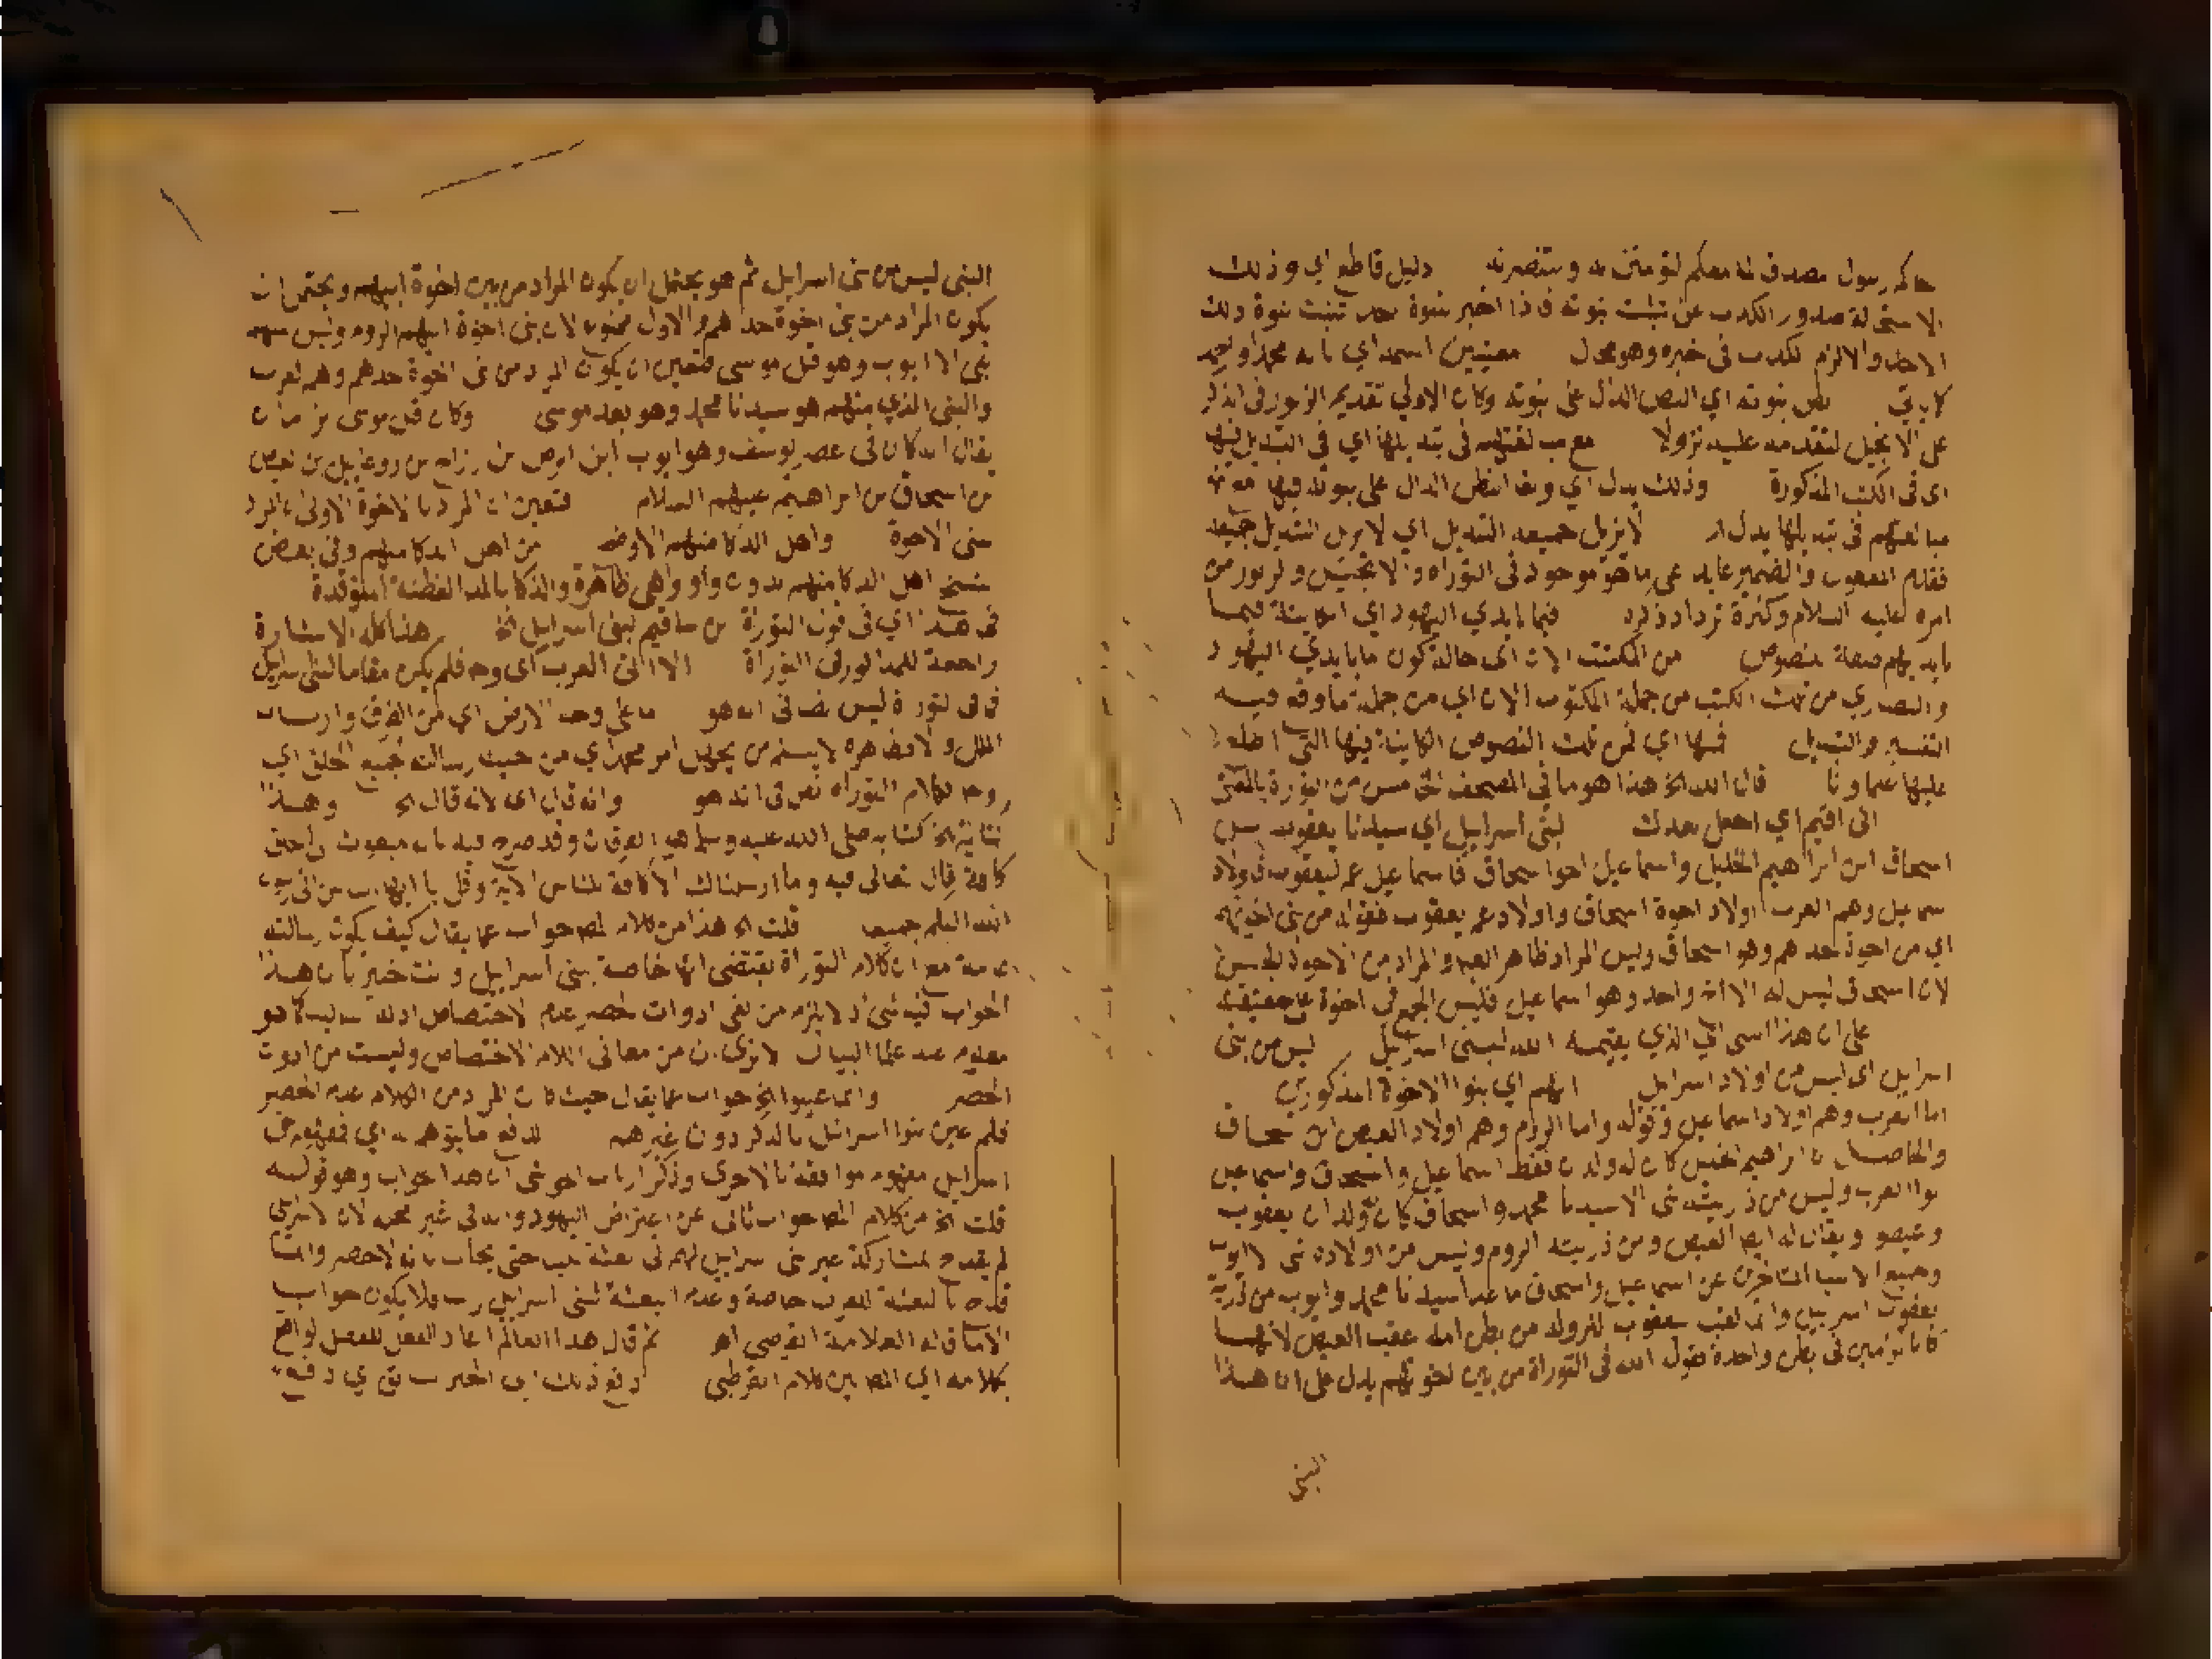 جاءكم رسول مصدق لما معكم لتؤمنن به ولتنصرنه دليل قاطع اي وذلك
لاستحالة صدور الكذب عن تثبت نبوته فاذا اخبر بنبوة احد تثبت نبوة ذلك
الاحد والا لزم الكذب في خبره وهو محال معينين اسمه اي بانه محمد او احمد
كما ياتي نص نبوته اي النص الدال على نبوته وكان الاولى تقديم الزبور في الذكر
على الانجيل لتقدمه عليه نزولا مع مبالغتهم في تبديلها اي في التبديل فيها
اي في الكتب المذكورة وذلك يدل اي وبقاء النص الدال على نبوته فيها مع
مبالغتهم في تبديلها يدل لا يزيل جميعه التبديل اي لا يزيل التبديل جميعه
فقدم المفعول والضمير عايد على ما هو موجود في التوراه والانجيل والزبور من
امره عليه السلام وكثرة ترداد ذكره فيما بايدي اليهود اي الكاينة فيما
بايديهم صفة لنصوص من الكتب الان اي حالة كون ما بايدي اليهود
والنصارى من تلك الكتب من جملة المكتوب الان اي من جملة ما وقع فيه
التغيير والتبديل فمنها اي فمن تلك النصوص الكاينة فيها التي اطلعوا
عليها علماونا قال الله الخ هذا هو ما في المصحف الخامس من التوراة بالمعنى
اني اقيم اي اجعل بعدك لبني اسرائيل اي سيدنا يعقوب بن
اسحاق ابن ابراهيم الخليل واسماعيل اخو اسحاق فاسماعيل عم ليعقوب فاولاد
اسماعيل وهم العرب اولاد اخوة اسحاق واولاد عم يعقوب فقوله من بني اخوتهم
اي من اخوة جدهم وهو اسحاق وليس المراد ظاهر العبارة والمراد من الاخوة الجنس
لان اسحاق ليس له الا اخ واحد وهو اسماعيل فليس الجمع في اخوة على حقيقته
على ان هذا النبي الذي يقيمه الله لبني اسرائيل ليس من بني
اسرايل اي ليس من اولاد اسرايل انهم اي بنوا الاخوة المذكورين
اما العرب وهم اولاد اسماعيل وقوله واما الروم وهم اولاد العيص ابن اسحاق
والحاصل ان ابراهيم الخليل كان له ولدان فقط اسماعيل واسحاق واسماعيل
ابو العرب وليس من ذريته نبي الا سيدنا محمد واسحاق كان له ولدان يعقوب
وعيصو ويقال له ايضا العيص ومن ذريته الروم وليس من اولاده نبي الا ايوب
وجميع الانبيا المتاخرين عن اسماعيل واسحاق ما عدا سيدنا محمد وايوب من ذرية
يعقوب اسرايل وانما لقب بيعقوب لنزوله من بطن امه عقب العيص لانهما
كانا توأمين في بطن واحدة فقول الله في التوراة من بين اخوتهم يدل على ان هذا
النبي
النبي ليس من بني اسرايل ثم هو يحتمل ان يكون المراد من بين اخوة ابيهم ويحتمل ان
يكون المراد من بني اخوة جدهم والاول ممنوع لان بني اخوة ابيهم الروم وليس منهم
نبي الا ايوب وهو قبل موسى فتعين ان يكون المراد من بني اخوة جدهم وهم العرب
والنبي الذي منهم هو سيدنا محمد وهو بعد موسى وكان قبل موسى بزمان
يقال انه كان في عصر يوسف وهو ايوب ابن اموص بن رزاح بن روعاييل بن العيص
بن اسحاق بن ابراهيم عليهم السلام فتعين ان المراد بالاخوة الاولى المراد
ببني الاخوة واهل الذكا منهم الاوضح من اهل الذكا منهم وفي بعض
نسخ اهل الذكا منهم بدون واو وهي ظاهرة والذكا بالمد الفطنة المتوقدة
في هذا اي في قول التوراة من ساقيم لبني اسرايل الخ هذا كله الاشارة
راجعة للمذكور في التوراة الا الى العرب اي وحده فلم يكن مقاما لبني اسرايل
فما في التوراة ليس نصا في انه هو ما على وجه الارض اي من الفرق وارسال
الملل ولا مظاهرة لا يسلم من يجهل امر محمد اي من حيث رسالته لجميع الخلق اي
وجه كلام التوراه نص في انه هو وانه قال اي لانه قال الخ وهذا
كتابه الخ كتابه صلى الله عليه وسلم هو الفرقان وقد صرح فيه بانه مبعوث للخلق
كافة قال تعالى فيه وما ارسلناك الا كافة للناس الآية وقل يا ايها الناس اني رسول
الله اليكم جميعا قلت الخ هذا من كلام المص جواب عما يقال كيف يكون رسالته
عامة مع ان كلام التوراة يقتضي انها خاصة ببني اسرايل وانت خبير بان هذا
الجواب فيه شيء اذ لا يلزم من نفي ادوات الحصر عدم الاختصاص كما هو
معلوم عند علما البيان لا ترى ان من معاني اللام الاختصاص وليست من ادوات
الحصر وانما عينوا الخ جواب عما يقال حيث كان المراد من الكلام عدم الحصر
فلم عين بنوا اسرائيل بالذكر دون غيرهم لدفع ما يتوهم به اي فغيرهم من
اسرايل مفهوم موافقة بالاحرى وذكر ارباب الحواشي ان هذا جواب وهو قوله
قلت الخ من كلام المص جواب ثاني عن اعتراض اليهود وانه في غير محله لان
لم يقدح لمشاركة غير بني اسرايل لهم في بعثة حتى يجاب بانه لا حصر وانما
قدح بالبعثة للعرب خاصة وعدم البعثة لبني اسرايل فلا يكون جوابه
الا ما قاله العلامة القرطبي اهـ ثم قال هذا العالم اعاد الفعل للفصل لوقوع
بكلامه اي المص بين كلام القرطبي